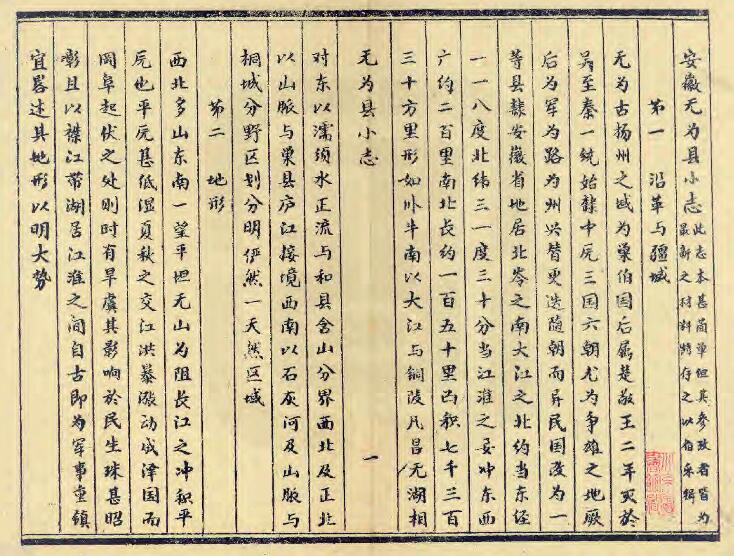 安徽无为县小志 此志本甚简单但其参考者皆为
最新之材料特存之以备采辑
第一 沿革与疆域
无为古扬州之域为巢伯国后属楚敬王二年灭於
吴至秦一统始隶中原三国六朝尤为争雄之地厥
后为军为路为州兴替更迭随朝而异民国改为一
等县隶安徽省地居北岭之南大江之北约当东经
一一八度北纬三一度三十分当江淮之要冲东西
广约二百里南北长约一百五十里面积七千三百
三十方里形如卧牛南以大江与铜陵凡昌无湖相
无为县小志
一
对东以濡须水正流与和县含山分界西北及正北
以山脉与巢县庐江接境西南以石灰河及山脉与
桐城分野区划分明俨然一天然区域
第二 地形
西北多山东南一望平坦无山为阻长江之冲积平
原也平原甚低湿夏秋之交江洪暴涨动成泽国而
冈阜起伏之处则时有旱虞其影响於民生殊甚昭
彰且以襟江带湖居江淮之间自古即为军事重镇
宜略述其地形以明大势